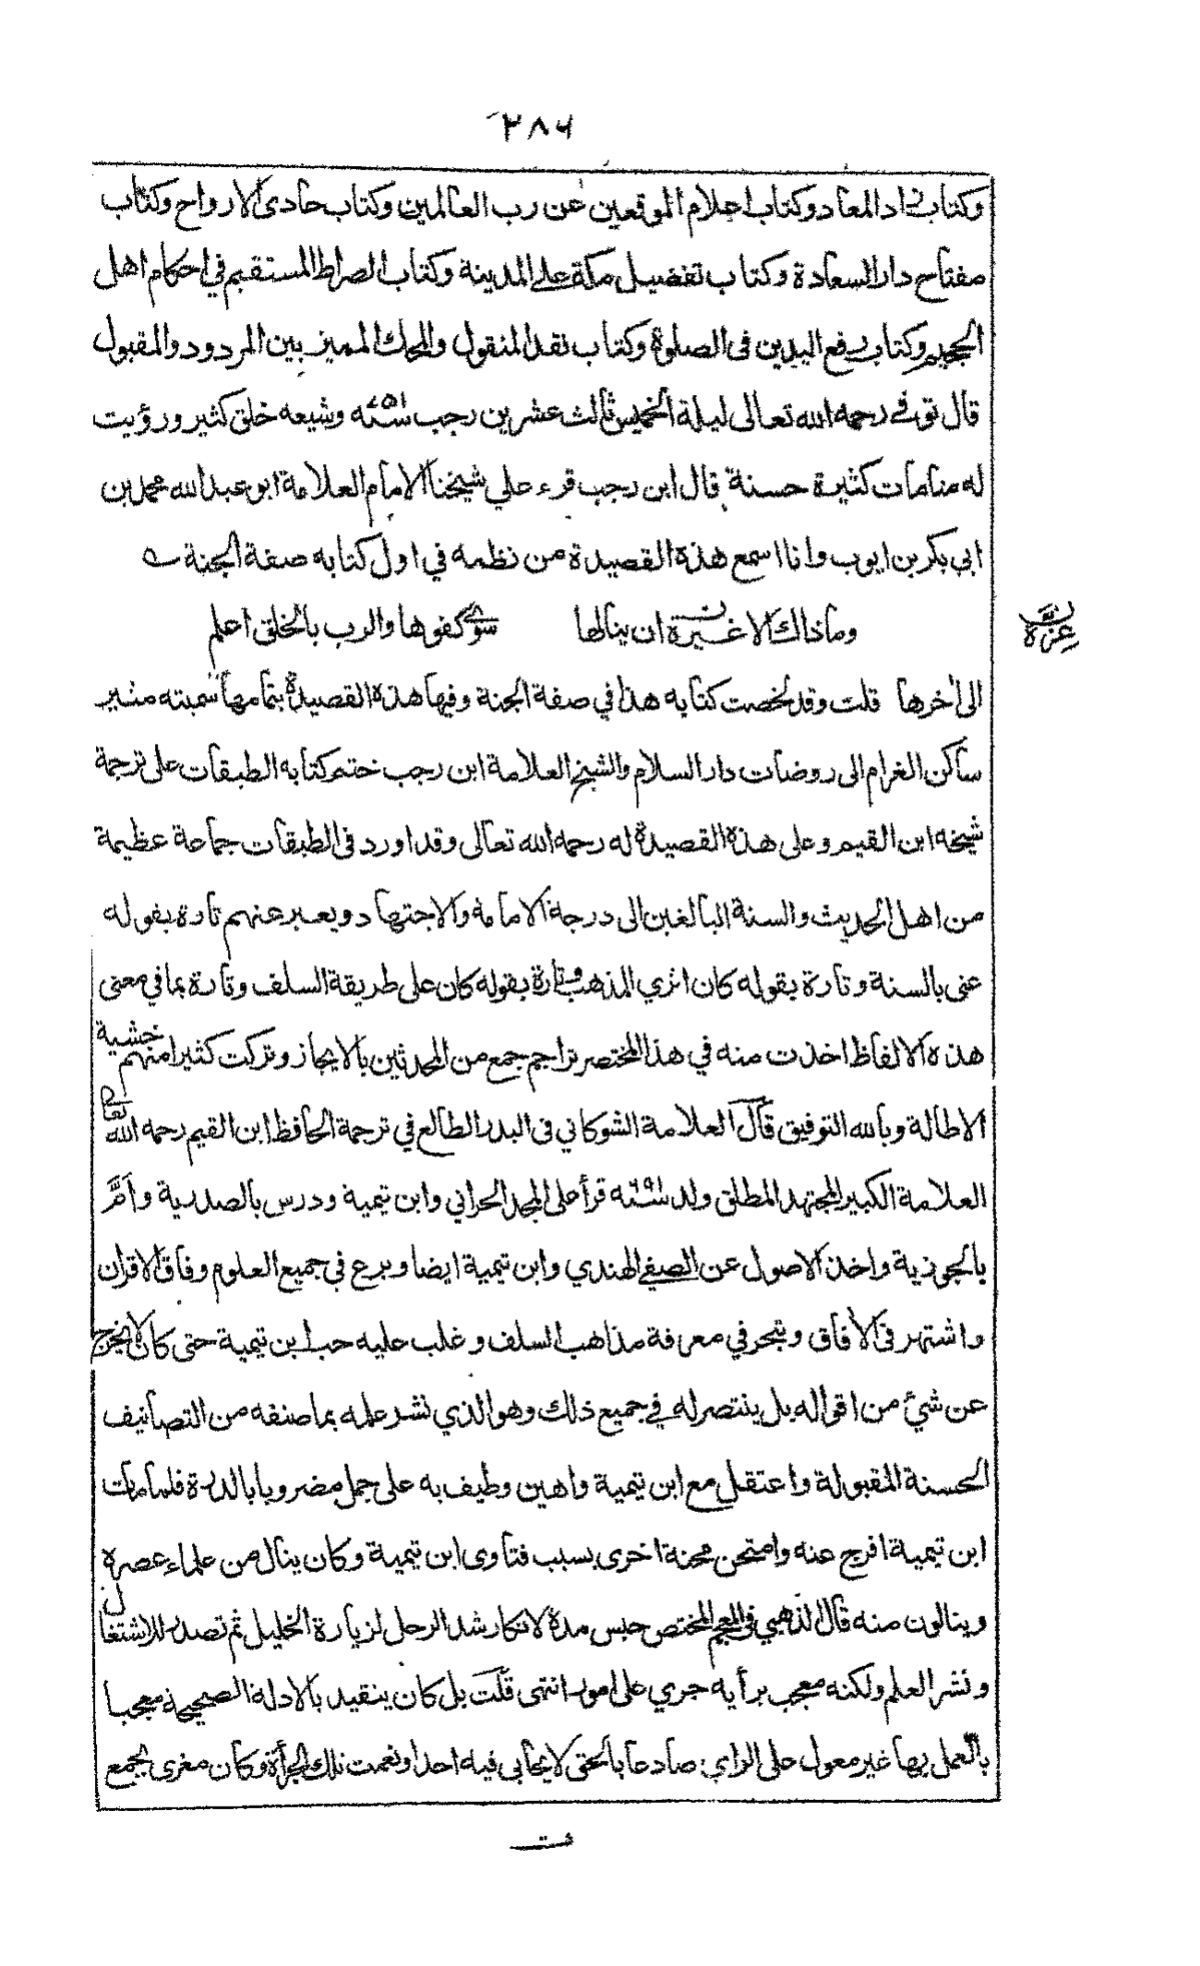 ٢٨٦
وكتاب زاد المعاد وكتاب اعلام الموقعين عن رب العالمين وكتاب حادى الارواح وكتاب
مفتاح دار السعادة وكتاب تفضيل مكة على المدينة وكتاب الصراط المستقيم في احكام اهل
الجحيم وكتاب رفع اليدين فى الصلوة وكتاب نقد المنقول والمحك المميز بين المردود والمقبول
قال توفي رحمه الله تعالى ليلة الخميس ثالث عشرين رجب سنة ٧٥١ وشيعه خلق كثير ورؤيت
له منامات كثيرة حسنة قال ابن رجب قرء على شيخنا الامام العلامة ابو عبد الله محمد بن
ابي بكر بن ايوب وانا اسمع هذه القصيدة من نظمه في اول كتابه صفة الجنة
وما ذاك الا غيرة ان ينالها سوى كفوها والرب بالخلق اعلم
ن عزة
الى اخرها قلت وقد لخصت كتابه هذا في صفة الجنة وفيها هذه القصيدة بتمامها سميته مثير
ساكن الغرام الى روضات دار السلام والشيخ العلامة ابن رجب ختم كتابه الطبقات على ترجمة
شيخه ابن القيم وعلى هذه القصيدة له رحمه الله تعالى وقد اورد فى الطبقات جماعة عظيمة
من اهل الحديث والسنة البالغين الى درجة الامامة والاجتهاد ويعبر عنهم تارة بقوله
عنى بالسنة وتارة بقوله كان اثري المذهب وتارة بقوله كان على طريقة السلف وتارة بما في معنى
هذه الالفاظ اخذت منه في هذا المختصر تراجم جمع من المحدثين بالايجاز وتركت كثيرا منهم خشية
الاطالة وبالله التوفيق قال العلامة الشوكاني فى البدر الطالع في ترجمة الحافظ ابن القيم رحمه الله تعالى
العلامة الكبير المجتهد المطلق ولد سنة ٦٩١ قرأ على المجد الحراني وابن تيمية ودرس بالصدرية وأمَّ
بالجوزية واخذ الاصول عن الصفي الهندي وابن تيمية ايضا وبرع في جميع العلوم وفاق الاقران
واشتهر فى الآفاق وتبحر في معرفة مذاهب السلف وغلب عليه حب ابن تيمية حتى كان لا يخرج
عن شيء من اقواله بل ينتصر له في جميع ذلك وهو الذي نشر علمه بما صنفه من التصانيف
الحسنة المقبولة واعتقل مع ابن تيمية واهين وطيف به على جمل مضروبا بالدرة فلما مات
ابن تيمية افرج عنه وامتحن محنة اخرى بسبب فتاوى ابن تيمية وكان ينال من علماء عصره
وينالون منه قال الذهبي في المعجم المختص حبس مدة لانكار شد الرحل لزيارة الخليل ثم تصدر للاشتغال
ونشر العلم ولكنه معجب برأيه جري على امور انتهى قلت بل كان يتقيد بالادلة الصحيحة معجبا
بالعمل بها غير معول على الراي صادعا بالحق لا يحابي فيه احدا ونعمت تلك الجرأة وكان مغرى بجمع